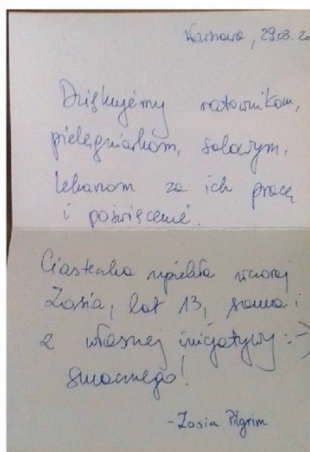 Warszawa, 29.03.20
Dziękujemy ratownikom,
pielęgniarkom, salowym,
lekarzom za ich pracę
i poświęcenie.
Ciasteczka upiekła wczoraj
Zosia, lat 13, sama i
z własnej inicjatywy :-)
Smacznego!
-Zosia Pilgrim